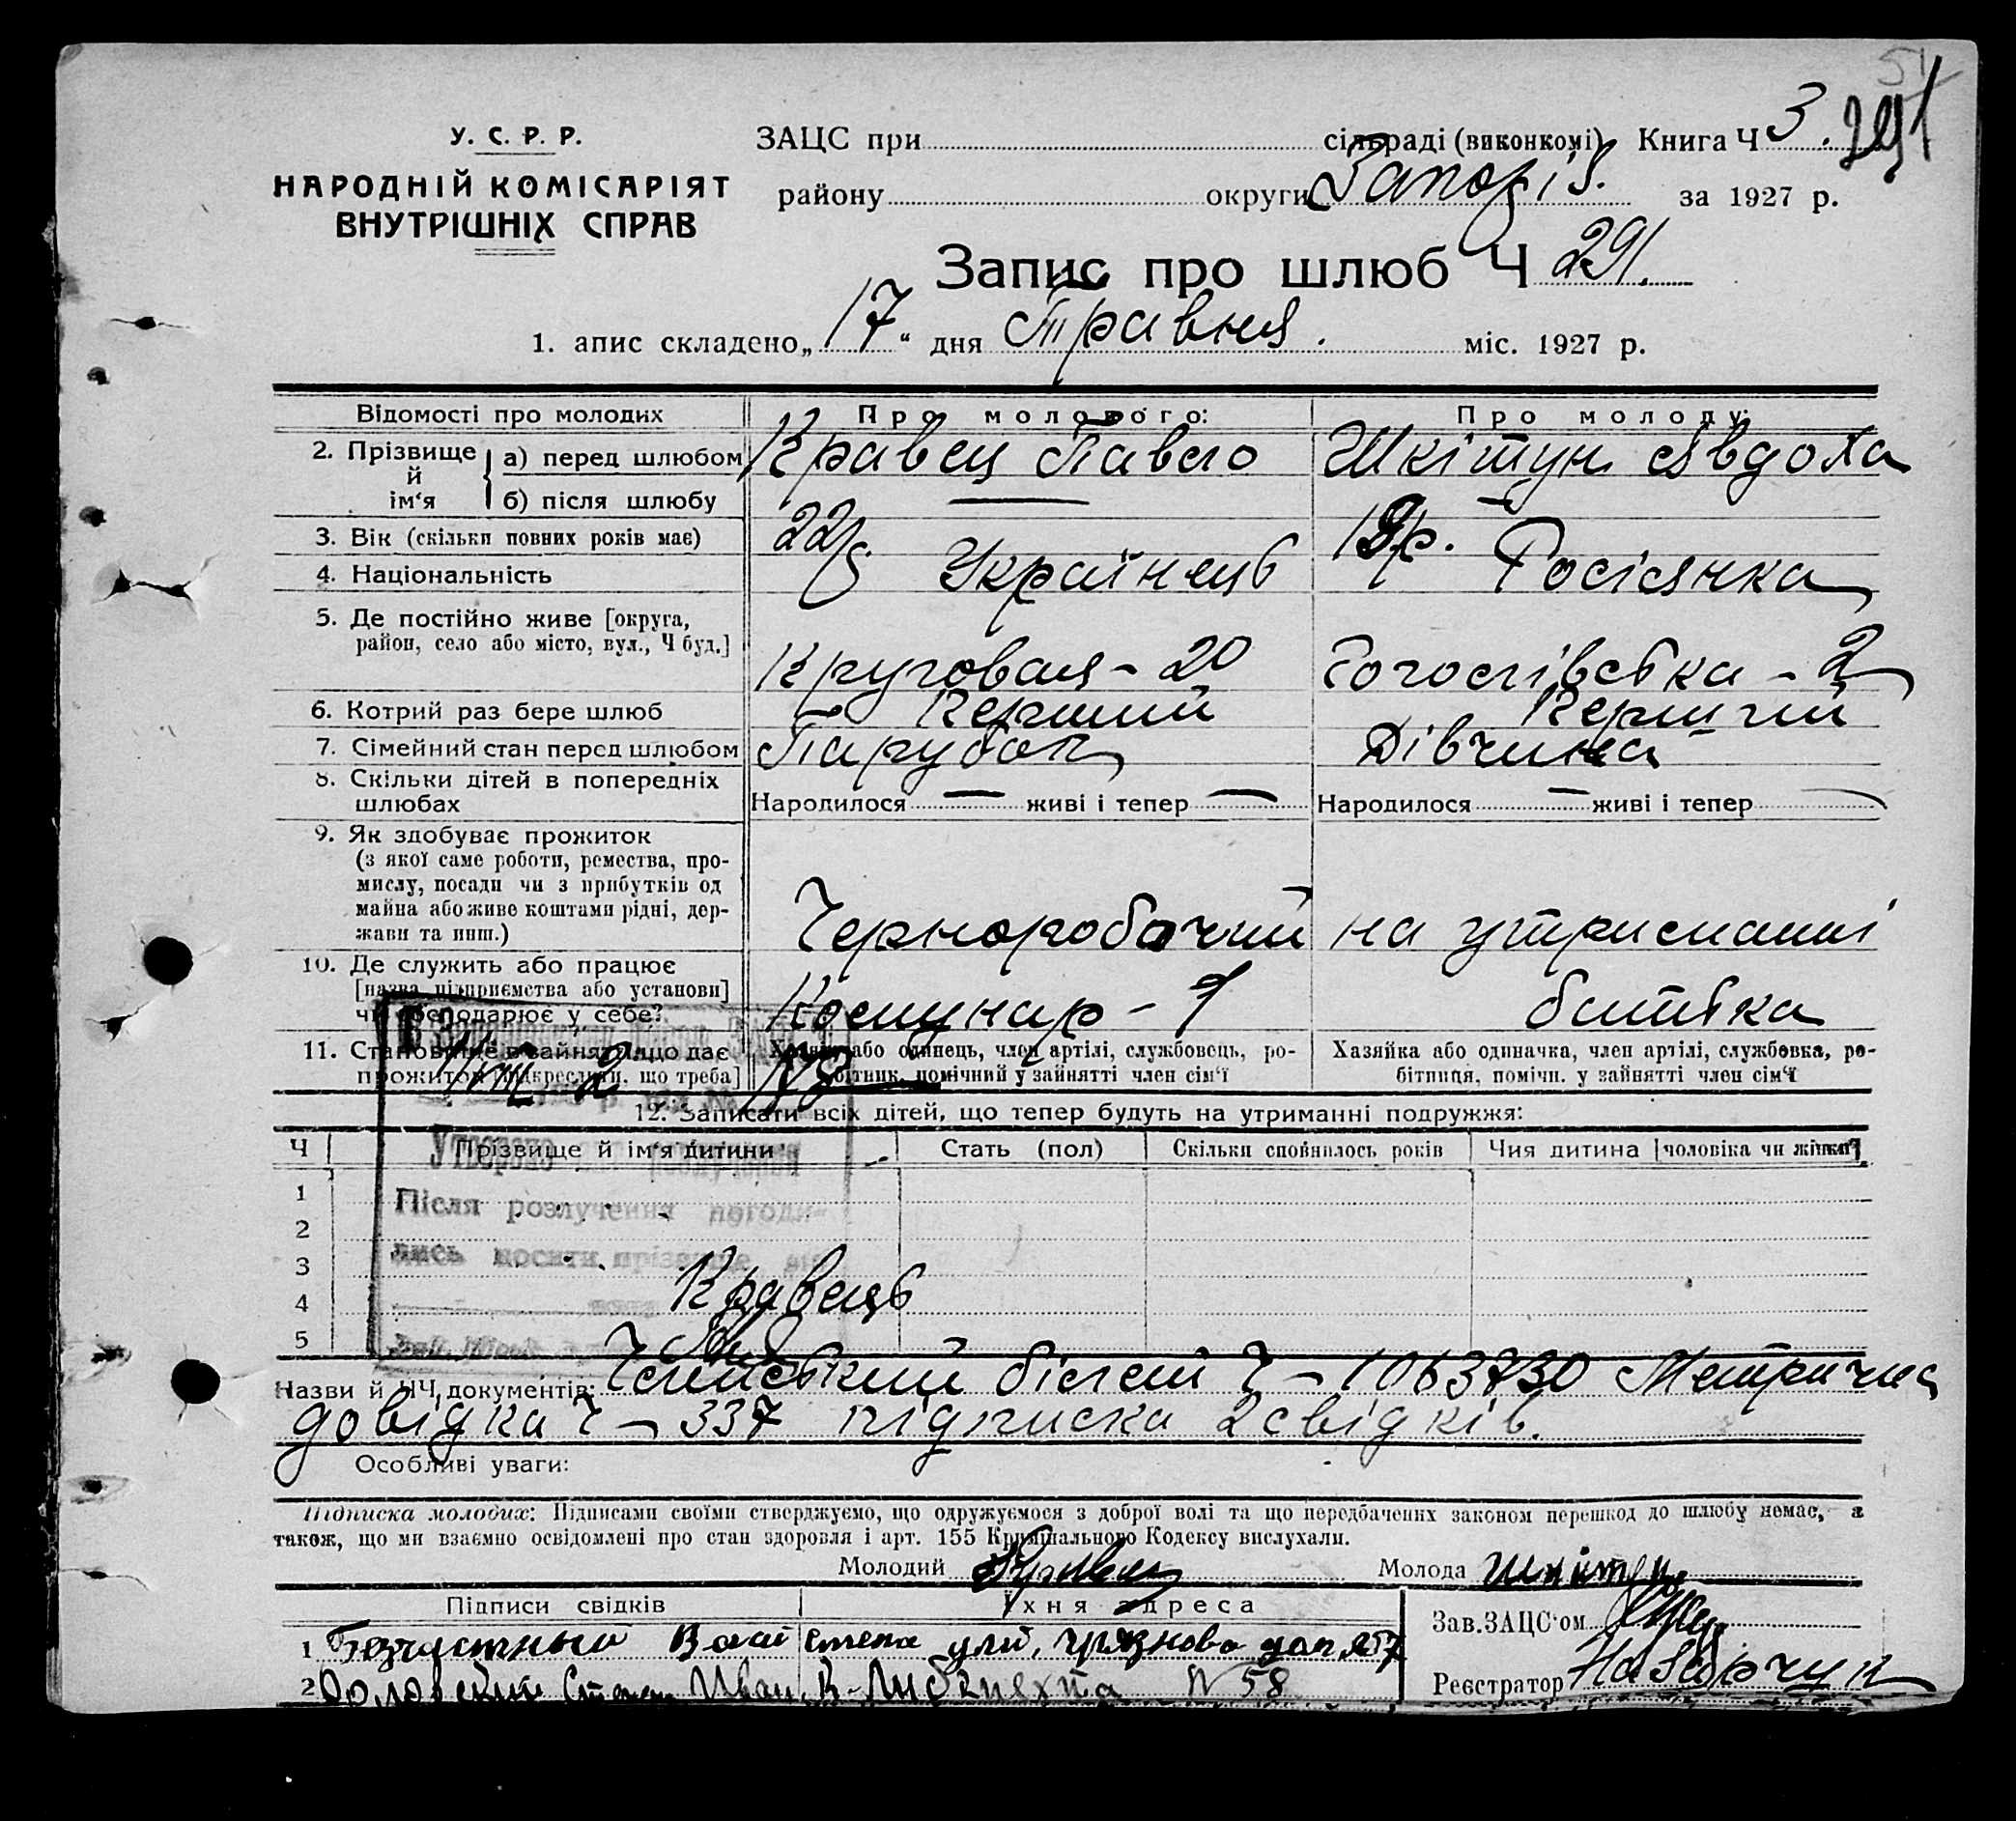 У. С. Р. Р.
НАРОДНІЙ КОМІСАРІЯТ
ВНУТРІШНІХ СПРАВ
ЗАЦС при сільраді (виконкомі) Книга Ч 3. 291
району округи Запоріз. за 1927 р.
Запис про шлюб Ч 291.
1. апис складено „17“ дня Травня. міс. 1927 р.
Відомості про молодих Про молодого: Про молоду:
2. Прізвище й ім'я а) перед шлюбом Кравец Павло Шкітун Явдоха
б) після шлюбу —
3. Вік (скільки повних років має) 22 р.
4. Національність Українець Росіянка
5. Де постійно живе [округа,
район, село або місто, вул., Ч буд.] Круговая - 20 - 2
6. Котрий раз бере шлюб Перший Перший
7. Сімейний стан перед шлюбом Парубок Дівчина
8. Скільки дітей в попередніх
шлюбах Народилося — живі і тепер — Народилося — живі і тепер —
9. Як здобуває прожиток
(з якої саме роботи, ремества, про-
мислу, посади чи з прибутків од
майна або живе коштами рідні, дер-
жави та инш.) Чернорабочий на утриманні
10. Де служить або працює
[назва підприємства або установи]
чи господарює у себе? Комунар - батька
11. Становище в занятті, що дає
прожиток [підкреслити, що треба] Хазяїн або одинець, член артілі, службовець, ро-
бітник, помічний у зайнятті член сім'ї
Хазяйка або одиначка, член артілі, службовка, ро-
бітниця, помічн. у зайнятті член сім'ї
12. Записати всіх дітей, що тепер будуть на утриманні подружжя:
Ч Прізвище й ім'я дитини Стать (пол) Скільки сповнилось років Чия дитина [чоловіка чи жінки?]
1
2
3
4
5
Після розлучення погоди-
лись носити прізвище
Кравець
Назви й ЧЧ документів: білет Ч - 1063730 Метрична
довідка Ч - 337 підписка 2 свідків.
Особливі уваги:
Підписка молодих: Підписами своїми стверджуємо, що одружуємося з доброї волі та що передбачених законом перешкод до шлюбу немає, а
також, що ми взаємно освідомлені про стан здоровля і арт. 155 Кримінального Кодексу вислухали.
Молодий Кравец Молода Шкітун
Підписи свідків Їхня адреса
Зав. ЗАЦС'ом
1
2 Иван. К-Либкнехта № 58
Реєстратор